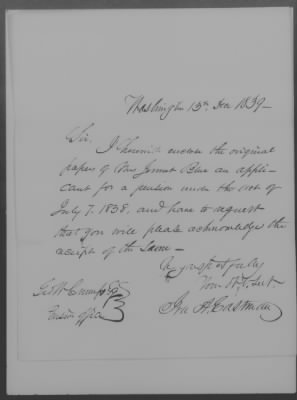 Washington 13th Dec 1839 -
Sir,
I herewith enclose the original
papers of Mrs Blue an appli-
cant for a pension under the act of
July 7. 1838, and have to request
that you will please acknowledge the
receipt of the same -
Respectfully
Your Ob. Svt.
Ira A. Eastman
Geo W Crump Esq
Pension Office